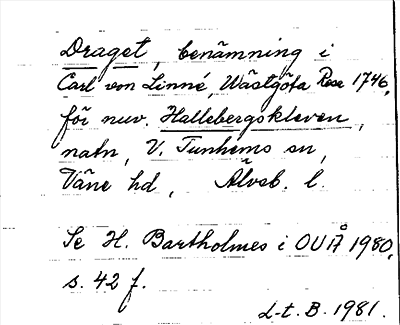 Draget, benämning i
Carl von Linné, Wästgöta Resa 1746,
för nuv. Hallebergskleven,
natn, V. Tunhems sn,
Väne hd, Älvsb. l.
Se H. Bartholmes i OUÅ 1980,
s. 42 f.
L-t. B. 1981.